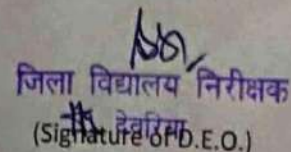 जिला विद्यालय निरीक्षक
देवरिया
(Signature of D.E.O.)